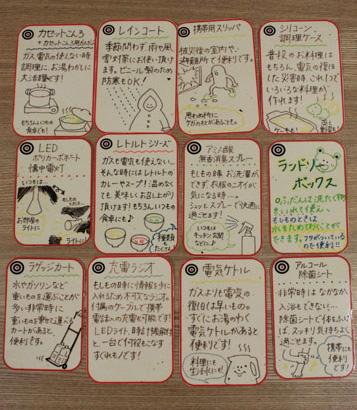 カセットこんろ
ガス電気の使えない時
調理に、お湯わかしに
大活躍です!
レインコート
季節問わず、雨や風
雪対策にお使い頂け
ます。ビニール製のため
防寒もOK!
携帯用スリッパ
被災後の室内や、
避難所で便利です。
シリコーン
調理ケース
普段のお料理は
もちろん、電気の復旧
した災害時これ1つで
いろいろな料理が
作れます!
LED
ポリカーボネート
懐中電灯
レトルトシリーズ
ガスも電気も使えない…
そんな時にはレトルトの
カレーやスープ!温めなく
ても美味しくお召し上がり
頂けます!もちろんいつもの
食事にも♪
アミノ酸
無香消臭スプレー
もしもの時お洗濯が
できず、衣服のニオイが
気になる時…
シュッとスプレーで快適に
過ごせます!
ランドリー
ボックス
ラゲッジカート
水やガソリンなど
重いものを運ぶことが
多い非常時に
重いものを楽々と運べる
カートがあると
便利です!
充電ラジオ
もしもの時に情報を手に
入れるための不可欠なラジオ。
付属のケーブルで携帯
電話への充電も可能です!
LEDライト、時計機能付
と一台で何役もこなす
すぐれモノです!
電気ケトル
ガスよりも電気の
復旧は早いもの。
すぐにお湯のわく
電気ケトルがあると
便利です!
料理にも
生活にも!
アルコール
除菌シート
非常時はなかなか
入浴もできない…
除菌シートで体をふけ
ば、スッキリ気持ちよく
過ごせます。
携帯にも
便利です!